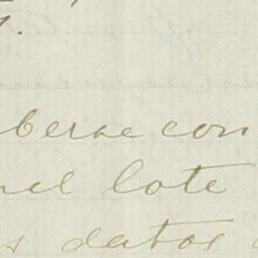 berse con
nel lote
s datos